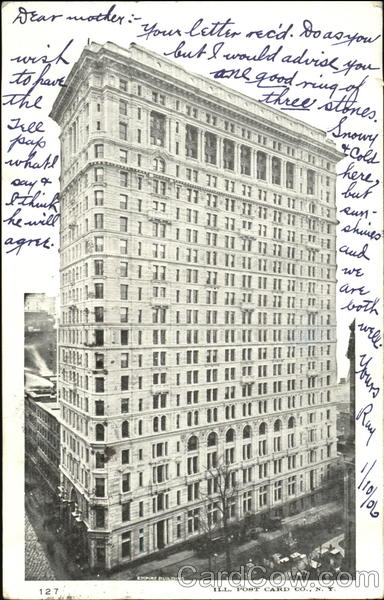 Dear mother:-
Your letter rec'd. Do as you
wish but I would advise you
to have one good ring of
the three stones.
Tell Snowy
pap & Cold
what I here,
say & but
I think sun-
he will shines
agree. and
we
are
both
well.
Yours
Ray
1/10/06
EMPIRE BUILDING
127 ILL. POST CARD CO., N.Y.
CardCow.com